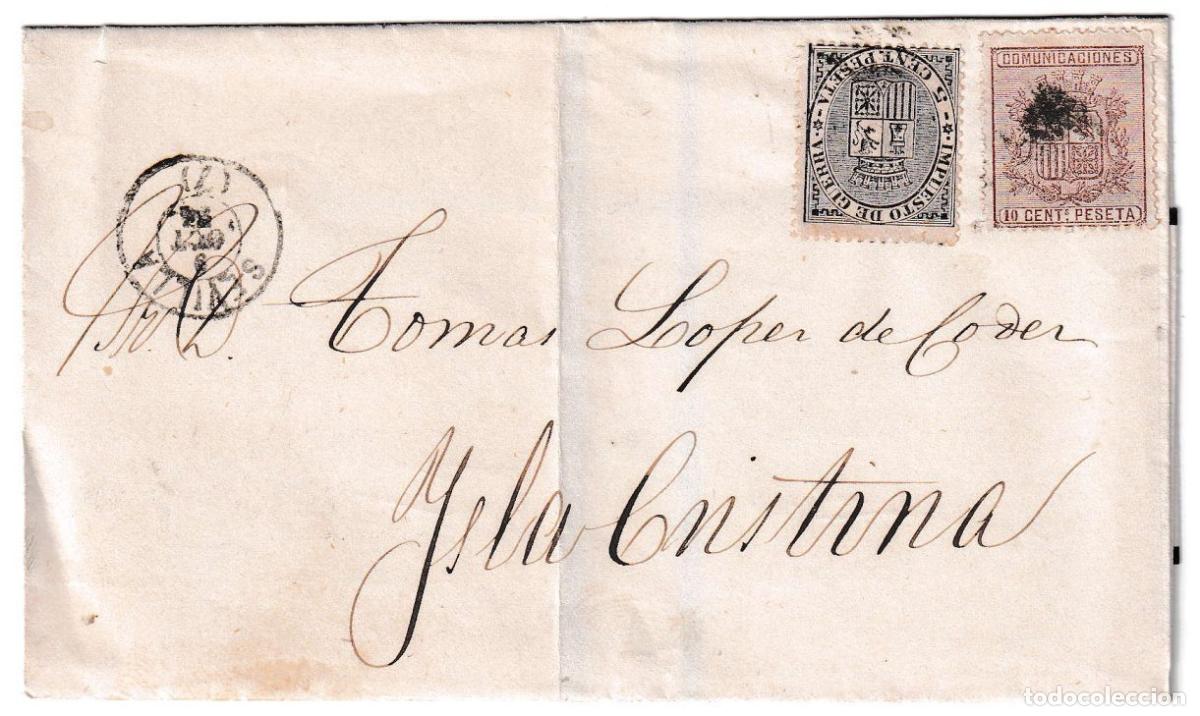 COMUNICACIONES
10 CENT. PESETA
5 CENT. PESETA
IMPUESTO DE GUERRA
SEVILLA
OCT
74
(17)
Sr. D. Tomas Loper de Coder
Ysla Cristina
todocoleccion